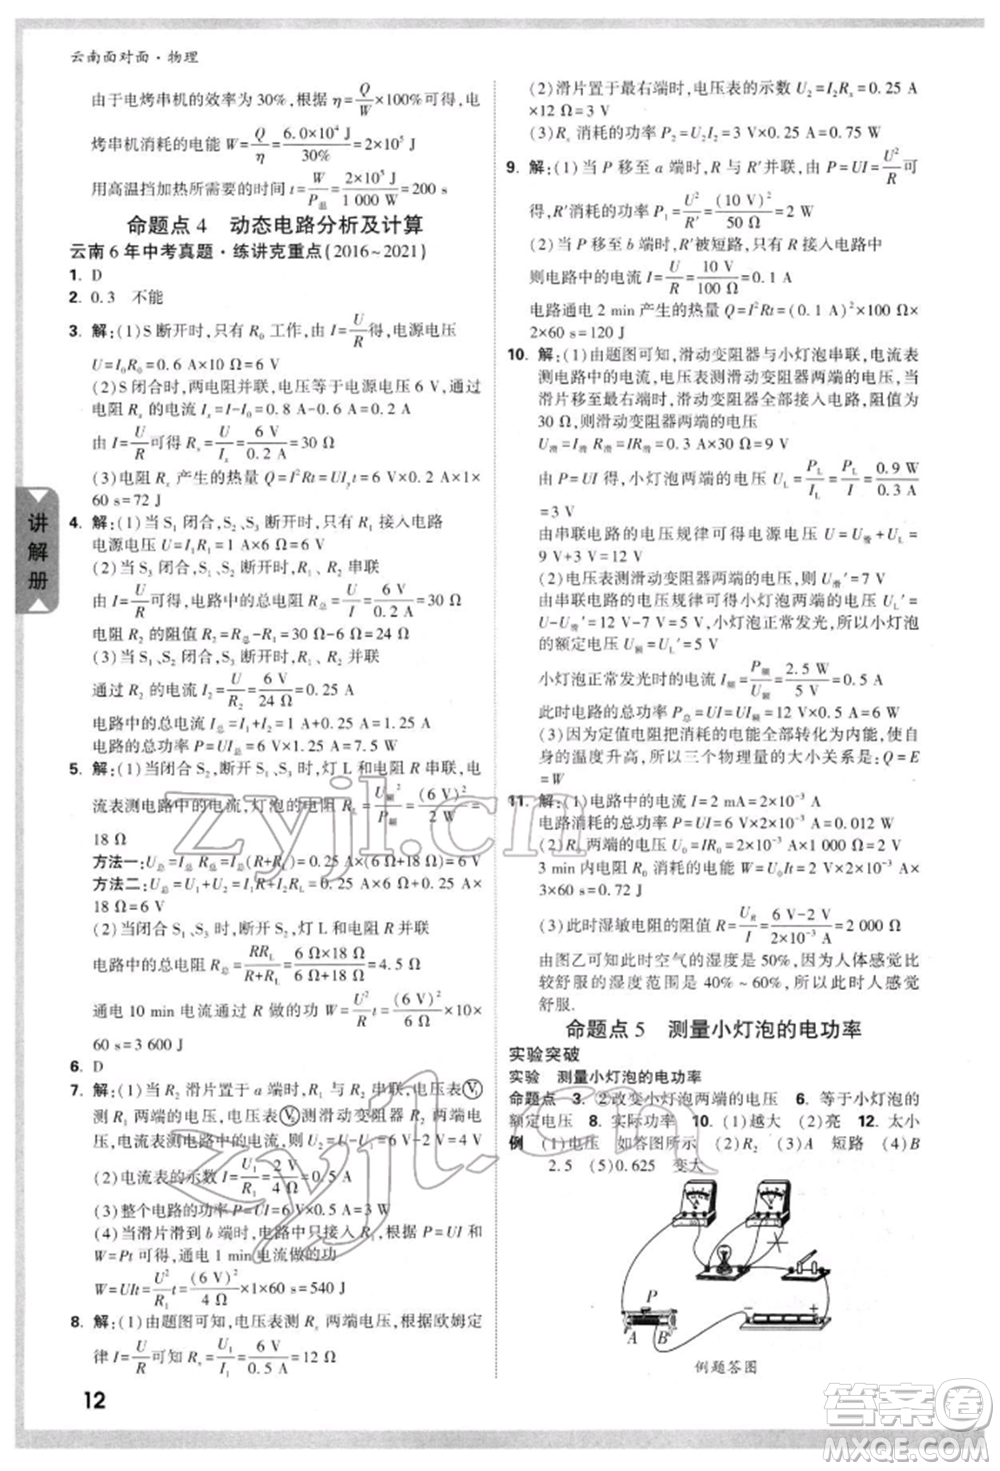 云南面对面·物理
由于电烤串机的效率为30%,根据η=Q/W×100%可得,电
烤串机消耗的电能 W=Q/η=6.0×10⁴ J/30%=2×10⁵ J
用高温挡加热所需要的时间 t=W/P温=2×10⁵ J/1 000 W=200 s
命题点4 动态电路分析及计算
云南6年中考真题·练讲克重点(2016~2021)
1. D
2. 0.3 不能
3. 解:(1)S断开时,只有R₀工作,由I=U/R得,电源电压
U=I₀R₀=0.6 A×10 Ω=6 V
(2)S闭合时,两电阻并联,电压等于电源电压6 V
通过Rₓ的电流Iₓ=I-I₀=0.8 A-0.6 A=0.2 A
由I=U/R可得Rₓ=U/Iₓ=6 V/0.2 A=30 Ω
(3)电阻Rₓ产生的热量Q=Iₓ²Rₓt=UIₓt=6 V×0.2 A×1×
60 s=72 J
4. 解:(1)当S₁闭合,S₂、S₃断开时,只有R₁接入电路
电源电压U=I₁R₁=1 A×6 Ω=6 V
(2)当S₃闭合,S₁、S₂断开时,R₁、R₂串联
由I=U/R可得,电路中的总电阻R总=U/I=6 V/0.2 A=30 Ω
R₂的阻值R₂=R总-R₁=30 Ω-6 Ω=24 Ω
(3)当S₁、S₂闭合,S₃断开时,R₁、R₂并联
通过R₂的电流I₂=U/R₂=6 V/24 Ω=0.25 A
电路中的总电流I总=I₁+I₂=1 A+0.25 A=1.25 A
电路的总功率P=UI总=6 V×1.25 A=7.5 W
5. 解:(1)当闭合S₂,断开S₁、S₃时,灯L和电阻R串联,电
流表测电路中的电流,灯泡的电阻R_L=U额²/P额=(6 V)²/2 W=
18 Ω
方法一:U总=I总R总=I总(R+R_L)=0.25 A×(6 Ω+18 Ω)=6 V
方法二:U总=U₁+U₂=I总R+I总R_L=0.25 A×6 Ω+0.25 A×
18 Ω=6 V
(2)当闭合S₁、S₃,断开S₂时,灯L和电阻R并联
电路中的总电阻R总=RR_L/(R+R_L)=6 Ω×18 Ω/(6 Ω+18 Ω)=4.5 Ω
通电10 min电流通过R做的功W=U²/R t=(6 V)²/6 Ω×10×
60 s=3 600 J
6. D
7. 解:(1)当R₂滑片置于a端时,R₁、R₂串联,电压表V₁
测R₁两端的电压,电压表V₂测滑动变阻器R₂两端电压,
电流表测电路中的电流,则U₂=U-U₁=6 V-2 V=4 V
(2)电流表的示数I=U₁/R₁=2 V/4 Ω=0.5 A
(3)整个电路的功率P=UI=6 V×0.5 A=3 W
(4)当滑片滑到b端时,电路中只接入R₁,由P=UI和
W=Pt可得,通电1 min电流做的功
W=UIt=U²/R₁ t=(6 V)²/4 Ω×1×60 s=540 J
8. 解:(1)由题图可知,电压表测Rₓ两端电压,根据欧姆定
律I=U/R可知Rₓ=U₁/I₁=6 V/0.5 A=12 Ω
(2)滑片置于最右端时,电压表的示数U₂=I₂Rₓ=0.25 A
×12 Ω=3 V
(3)Rₓ消耗的功率P=U₂I₂=3 V×0.25 A=0.75 W
9. 解:(1)当P移至a端时,R与R′并联,由P=UI=U²/R可
得,R消耗的功率P₁=U²/R=(10 V)²/50 Ω=2 W
(2)当P移至b端时,R′被短路,只有R接入电路中
则电路中的电流I=U/R=10 V/100 Ω=0.1 A
电路通电2 min产生的热量Q=I²Rt=(0.1 A)²×100 Ω×
2×60 s=120 J
10. 解:(1)由题图可知,滑动变阻器与小灯泡串联,电流表
测电路中的电流,电压表测滑动变阻器两端的电压,当
滑片移至最大阻值时,滑动变阻器全部接入电路,阻值为
30 Ω,则滑动变阻器两端的电压
U滑=I滑R滑=IR滑=0.3 A×30 Ω=9 V
由P=UI得,小灯泡两端的电压U_L=P_L/I_L=P_L/I=0.9 W/0.3 A
=3 V
由串联电路的电压规律可得电源电压U=U滑+U_L=
9 V+3 V=12 V
(2)电压表测滑动变阻器两端的电压U滑′=7 V
由串联电路的电压规律可得小灯泡两端的电压U_L′=
U-U滑′=12 V-7 V=5 V,小灯泡正常发光,所以小灯泡
的额定电压U额=U_L′=5 V
小灯泡正常发光时的电流I额=P额/U额=2.5 W/5 V=0.5 A
此时电路的总功率P总=UI=UI额=12 V×0.5 A=6 W
(3)因为定值电阻消耗的电能全部转化为内能,使自
身的温度升高,所以三个物理量的大小关系是:Q=E
=W
11. 解:(1)电路中的电流I=2 mA=2×10⁻³ A
电路消耗的总功率P=UI=6 V×2×10⁻³ A=0.012 W
(2)R₀两端的电压U₀=IR₀=2×10⁻³ A×1 000 Ω=2 V
3 min内电阻R₀消耗的电能W=U₀It=2 V×2×10⁻³ A×
3×60 s=0.72 J
(3)此时湿敏电阻的阻值R=U_R/I=6 V-2 V/2×10⁻³ A=2 000 Ω
由图乙可知此时空气的湿度是50%,因为人体感觉比
较舒服的湿度范围是40%~60%,所以此时人感觉
舒服.
命题点5 测量小灯泡的电功率
实验突破
实验 测量小灯泡的电功率
命题点 3. ②改变小灯泡两端的电压 6. 等于小灯泡的
额定电压 8. 实际功率 11. (1)越大 (2)亮 12. 太小
例 (1)电压 如答图所示 (2)R₂ (3)A 短路 (4)B
2.5 (5)0.625 变大
P
A B
例题答图
讲解册
12
zyjl.cn
答案圈
MXQE.COM